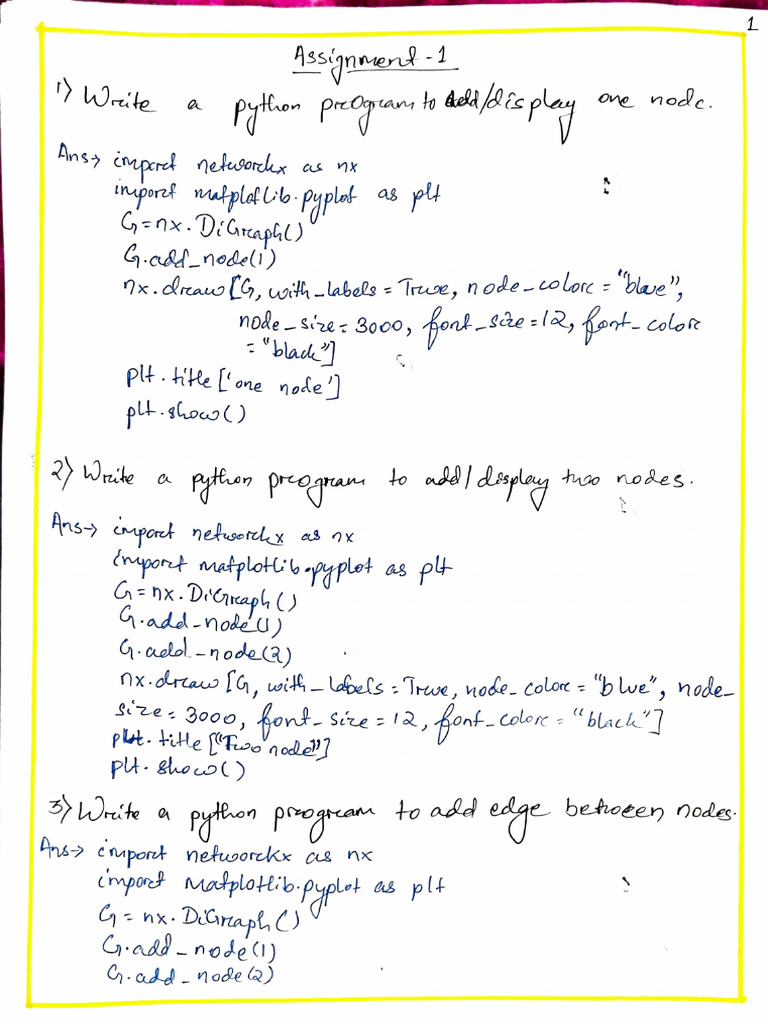 1
Assignment-1
1) Write a python program to add/display one node.
Ans→ import networkx as nx
import matplotlib.pyplot as plt
G=nx.DiGraph()
G.add_node(1)
nx.draw[G, with_labels=True, node_color="blue",
node_size=3000, font_size=12, font_color
="black"]
plt.title['one node']
plt.show()
2) Write a python program to add/display two nodes.
Ans→ import networkx as nx
import matplotlib.pyplot as plt
G=nx.DiGraph()
G.add_node(1)
G.add_node(2)
nx.draw[G, with_labels=True, node_color="blue", node_
size=3000, font_size=12, font_color="black"]
plt.title["Two node"]
plt.show()
3) Write a python program to add edge between nodes.
Ans→ import networkx as nx
import Matplotlib.pyplot as plt
G=nx.DiGraph()
G.add_node(1)
G.add_node(2)